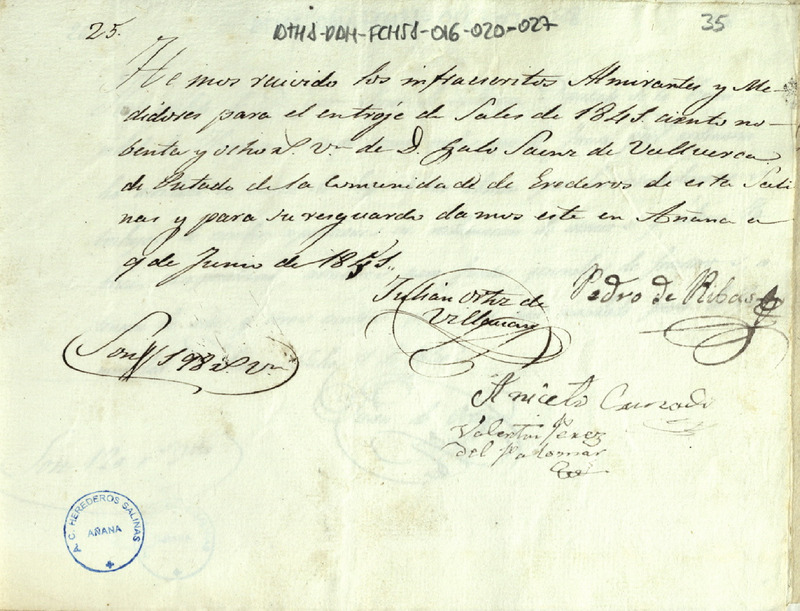 25.
DTHS-DDH-FCHSS-016-020-027
35
Hemos recivido los infraescritos Almirantes y Me-
didores para el entroje de Sales de 1845. ciento no-
benta y ocho rs. Vn. de D. Galo Saenz de Valluerca
de Putado de la Comunidad de Erederos de esta Sali
nas y para su resguardo damos este en Añana a
9 de Junio de 1845.
Julian Ortiz de
Pedro de Ribas
Son 198 rs. Vn
Aniceto
Valentin Perez
del Palomar
A. C. HEREDEROS SALINAS
AÑANA